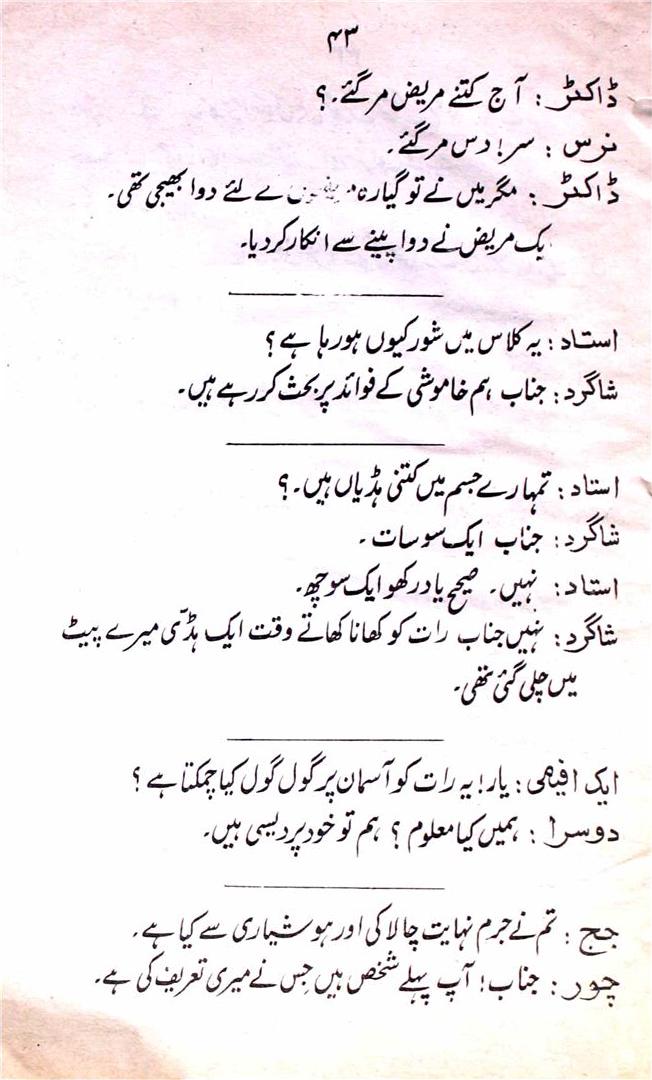 ۴۳
ڈاکٹر : آج کتنے مریض مر گئے۔؟
نرس : سر! دس مر گئے۔
ڈاکٹر : مگر میں نے تو گیارہ لئے دوا بھیجی تھی۔
یک مریض نے دوا پینے سے انکار کر دیا۔
استاد : یہ کلاس میں شور کیوں ہو رہا ہے ؟
شاگرد : جناب ہم خاموشی کے فوائد پر بحث کر رہے ہیں۔
استاد : تمہارے جسم میں کتنی ہڈیاں ہیں۔؟
شاگرد : جناب ایک سو سات ۔
استاد : نہیں۔ صحیح یاد رکھو ایک سو چھ۔
شاگرد : نہیں جناب رات کو کھانا کھاتے وقت ایک ہڈّی میرے پیٹ
میں چلی گئی تھی۔
ایک افیمی : یار! یہ رات کو آسمان پر گول گول کیا چمکتا ہے ؟
دوسرا : ہمیں کیا معلوم ؟ ہم تو خود پردیسی ہیں۔
جج : تم نے جرم نہایت چالاکی اور ہوشیاری سے کیا ہے۔
چور : جناب! آپ پہلے شخص ہیں جس نے میری تعریف کی ہے۔